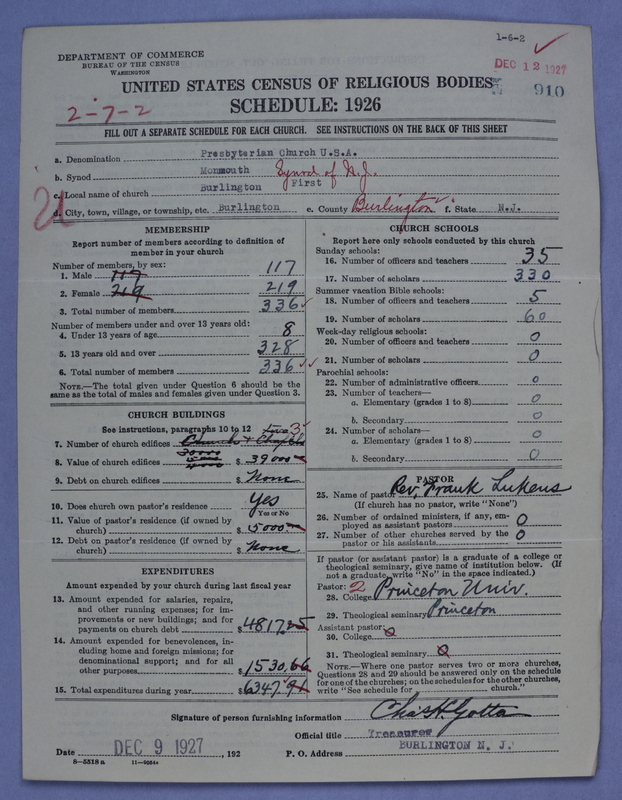 1-6-2
DEPARTMENT OF COMMERCE
BUREAU OF THE CENSUS
WASHINGTON
DEC 12 1927
UNITED STATES CENSUS OF RELIGIOUS BODIES
910
2-7-2
SCHEDULE: 1926
FILL OUT A SEPARATE SCHEDULE FOR EACH CHURCH. SEE INSTRUCTIONS ON THE BACK OF THIS SHEET
a. Denomination Presbyterian Church U.S.A.
b. Synod Monmouth Synod of N.J.
c. Local name of church Burlington First
d. City, town, village, or township, etc. Burlington e. County Burlington f. State N.J.
MEMBERSHIP
Report number of members according to definition of
member in your church
Number of members, by sex:
1. Male 117 117
2. Female 219 219
3. Total number of members 336
Number of members under and over 13 years old:
4. Under 13 years of age 8
5. 13 years old and over 328
6. Total number of members 336
NOTE.—The total given under Question 6 should be the
same as the total of males and females given under Question 3.
CHURCH BUILDINGS
See instructions, paragraphs 10 to 12 two 3
7. Number of church edifices Church + Chapel
8. Value of church edifices $ 39000
9. Debt on church edifices $ None
10. Does church own pastor's residence Yes
Yes or No
11. Value of pastor's residence (if owned by
church) $ 5000
12. Debt on pastor's residence (if owned by
church) $ None
EXPENDITURES
Amount expended by your church during last fiscal year
13. Amount expended for salaries, repairs,
and other running expenses; for im-
provements or new buildings; and for
payments on church debt $ 4817.25
14. Amount expended for benevolences, in-
cluding home and foreign missions; for
denominational support; and for all
other purposes $ 1530.66
15. Total expenditures during year $ 6347.91
CHURCH SCHOOLS
Report here only schools conducted by this church
Sunday schools:
16. Number of officers and teachers 35
17. Number of scholars 330
Summer vacation Bible schools:
18. Number of officers and teachers 5
19. Number of scholars 60
Week-day religious schools:
20. Number of officers and teachers 0
21. Number of scholars 0
Parochial schools:
22. Number of administrative officers 0
23. Number of teachers—
a. Elementary (grades 1 to 8) 0
b. Secondary 0
24. Number of scholars—
a. Elementary (grades 1 to 8) 0
b. Secondary 0
PASTOR
25. Name of pastor Rev. Frank Lukens
(If church has no pastor, write "None")
26. Number of ordained ministers, if any, em-
ployed as assistant pastors 0
27. Number of other churches served by the
pastor or his assistants 0
If pastor (or assistant pastor) is a graduate of a college or
theological seminary, give name of institution below. (If
not a graduate, write "No" in the space indicated.)
Pastor: 2
28. College Princeton Univ.
29. Theological seminary Princeton
Assistant pastor:
30. College 0
31. Theological seminary 0
NOTE.—Where one pastor serves two or more churches,
Questions 28 and 29 should be answered only on the schedule
for one of the churches; on the schedules for the other churches,
write "See schedule for church."
Signature of person furnishing information Chas H. Gotta
Official title Treasurer
Date DEC 9 1927, 192 P. O. Address BURLINGTON N. J.
8-5518a